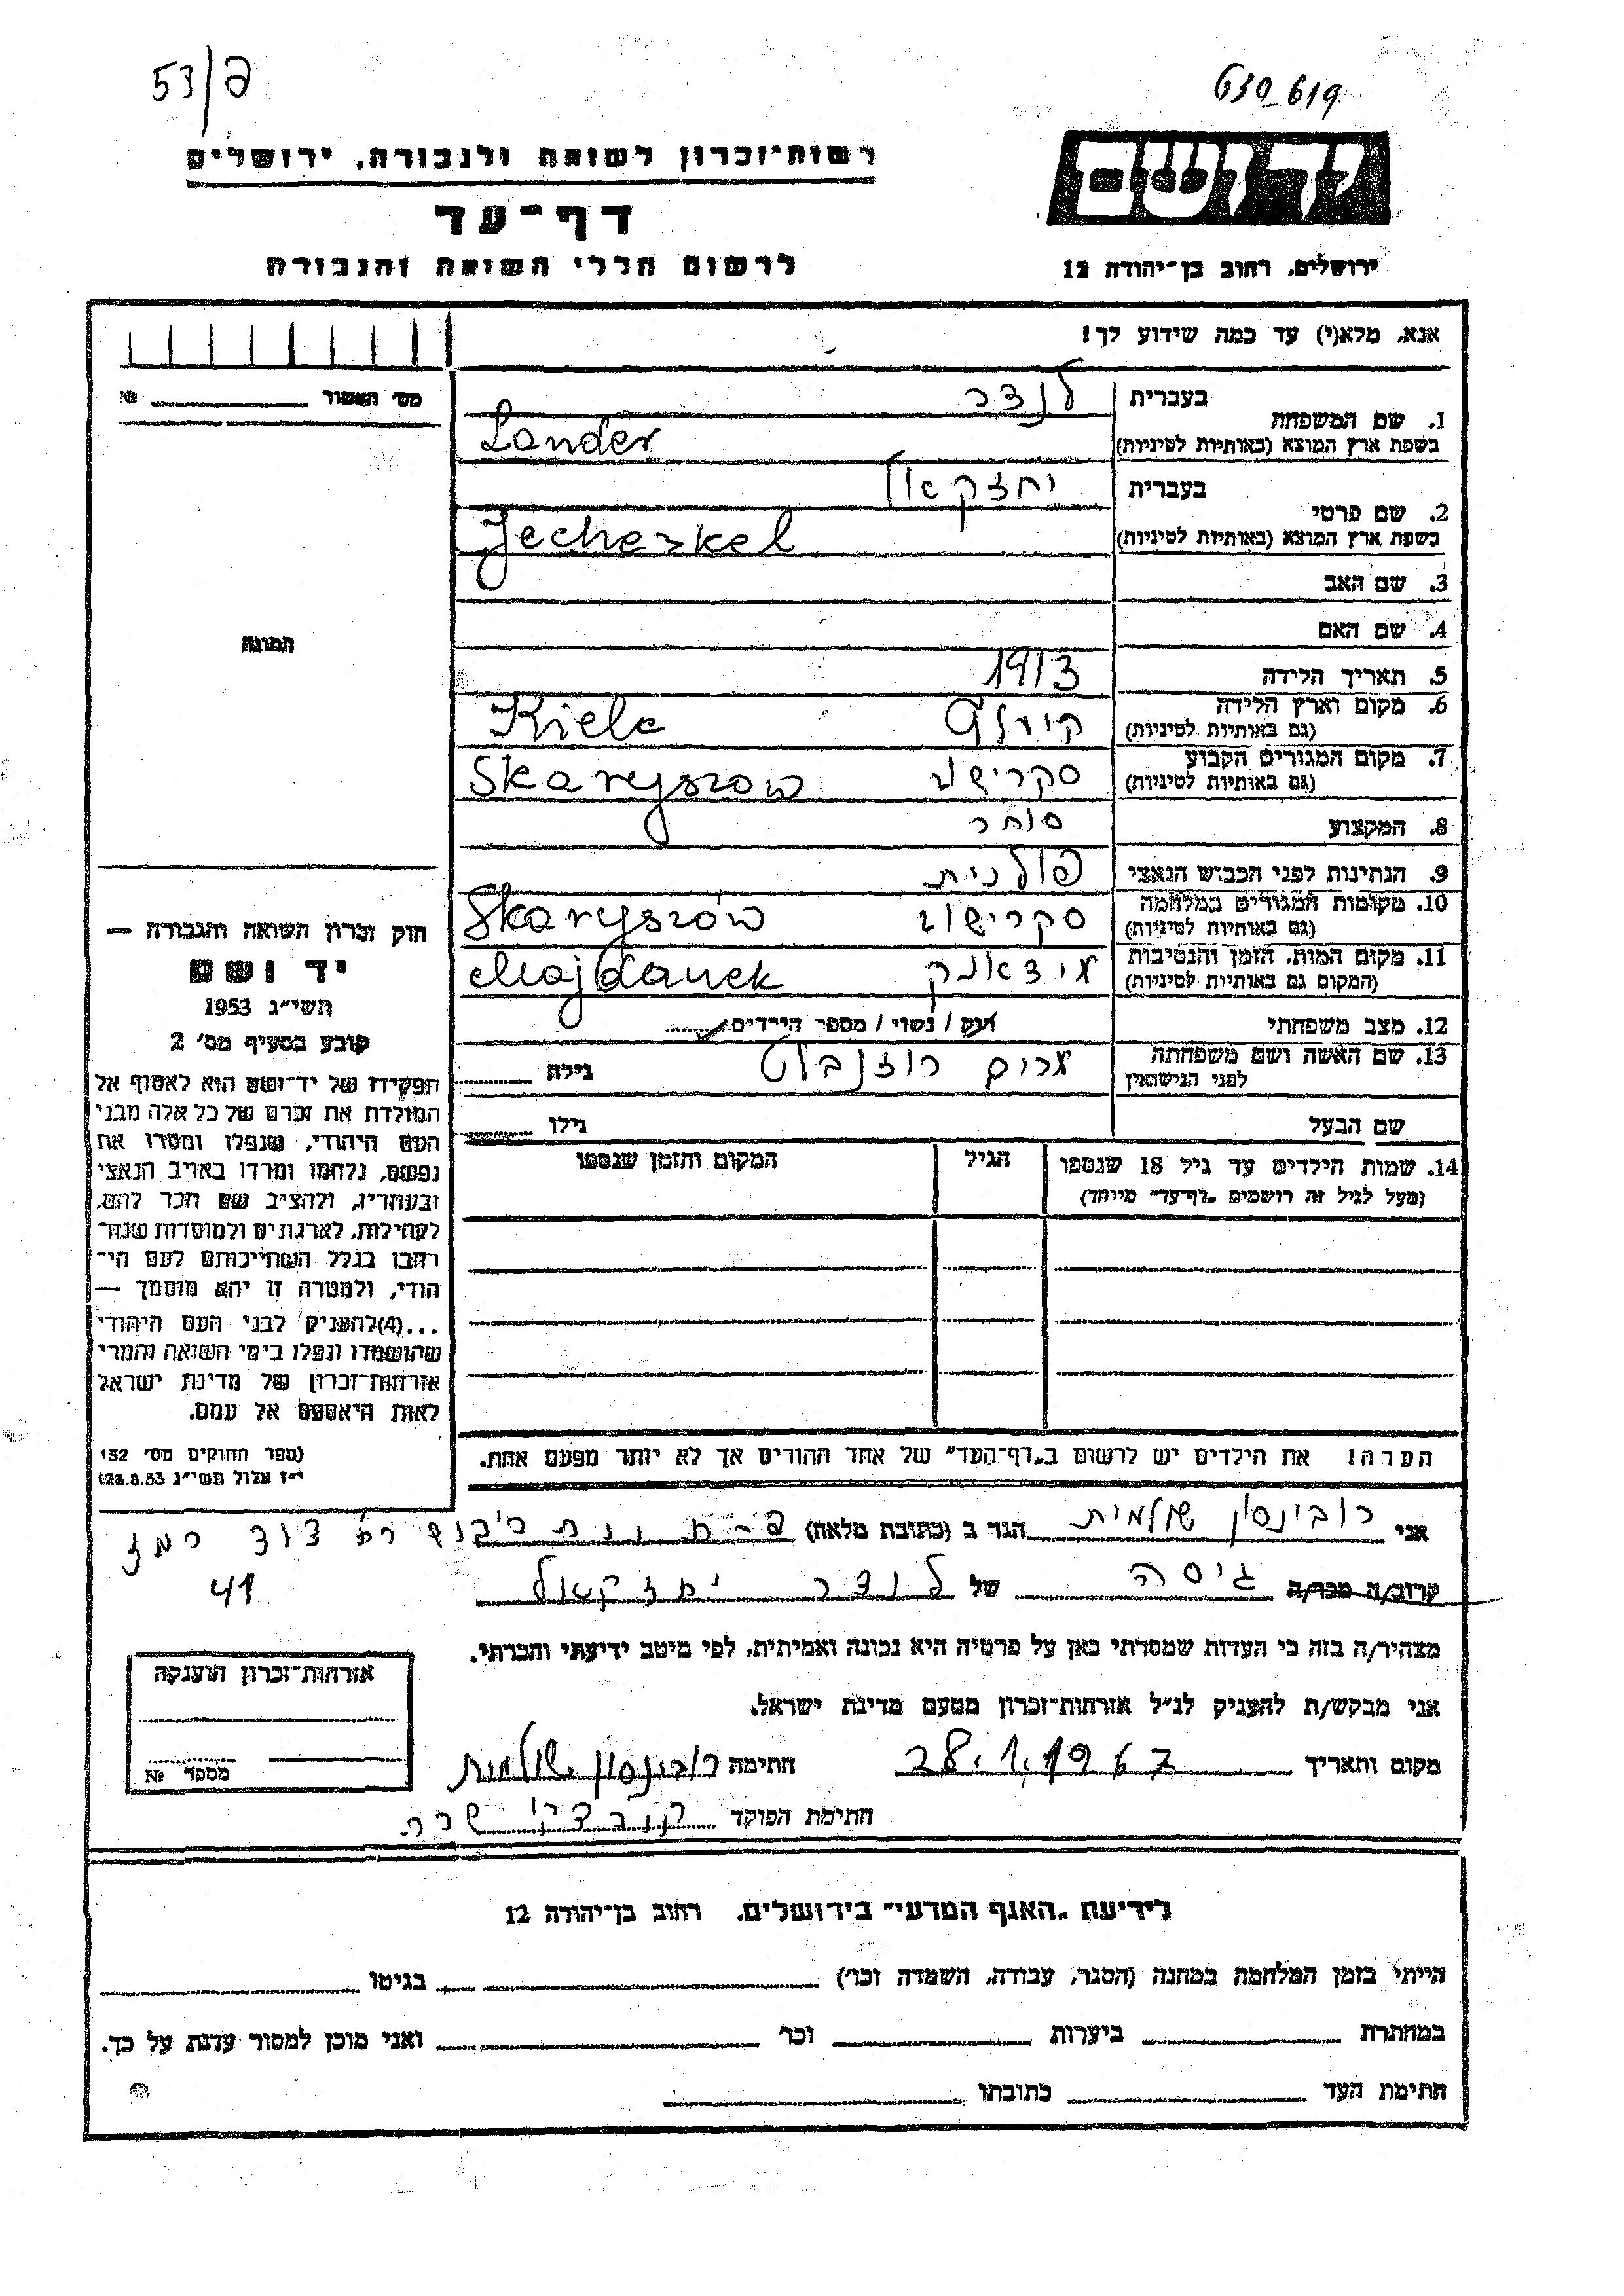 53/פ
630_619
יד ושם
רשות־זכרון לשואה ולגבורה, ירושלים
דף־עד
לרשום חללי השואה והגבורה
ירושלים, רחוב בן־יהודה 12
אנא, מלא(י) עד כמה שידוע לך!
מס' האשור № 
1. שם המשפחה בעברית לנדר
בשפת ארץ המוצא (באותיות לטיניות) Lander
2. שם פרטי בעברית יחזקאל
בשפת ארץ המוצא (באותיות לטיניות) Jecheskel
3. שם האב
4. שם האם
תמונה
5. תאריך הלידה 1913
6. מקום וארץ הלידה Kiele
(גם באותיות לטיניות)
7. מקום המגורים הקבוע סקרישוב Skaryszow
(גם באותיות לטיניות)
8. המקצוע סוחר
9. הנתינות לפני הכבוש הנאצי פולנית
10. מקומות המגורים במלחמה סקרישוב Skaryszów
(גם באותיות לטיניות)
11. מקום המות, הזמן והנסיבות מידאנק Majdanek
(המקום גם באותיות לטיניות)
12. מצב משפחתי רוק / נשוי / מספר הילדים
13. שם האשה ושם משפחתה מרים רוזנבלט גילה
לפני הנישואין
שם הבעל גילו
14. שמות הילדים עד גיל 18 שנספו הגיל המקום והזמן שנספו
(מעל לגיל זה רושמים „דף־עד" מיוחד)
הערה! את הילדים יש לרשום ב„דף־העד" של אחד ההורים אך לא יותר מפעם אחת.
חוק זכרון השואה והגבורה —
יד ושם
תשי"ג 1953
קובע בסעיף מס' 2
תפקידו של יד־ושם הוא לאסוף אל
המולדת את זכרם של כל אלה מבני
העם היהודי, שנפלו ומסרו את
נפשם, נלחמו ומרדו באויב הנאצי
ובעוזריו, ולהציב שם וזכר להם,
לקהילות, לארגונים ולמוסדות שנח־
רבו בגלל השתייכותם לעם הי־
הודי, ולמטרה זו יהא מוסמך —
...(4)להעניק לבני העם היהודי
שהושמדו ונפלו בימי השואה והמרי
אזרחות־זכרון של מדינת ישראל
לאות היאספם אל עמם.
(ספר החוקים מס' 132
י"ז אלול תשי"ג 28.8.53)
אני רובינסון שולמית הגר ב (כתובת מלאה) פ-ת רח דוד רמז
41
קרוב/ה מכר/ה גיסה של לנדר יחזקאל
מצהיר/ה בזה כי העדות שמסרתי כאן על פרטיה היא נכונה ואמיתית, לפי מיטב ידיעתי והכרתי.
אני מבקש/ת להעניק לנ"ל אזרחות־זכרון מטעם מדינת ישראל.
מקום ותאריך 28.1.1967 חתימה רובינסון שולמית
חתימת הפוקד שרה
אזרחות־זכרון הוענקה
מספר №
לידיעת „האגף המדעי" בירושלים, רחוב בן־יהודה 12
הייתי בזמן המלחמה במחנה (הסגר, עבודה, השמדה וכו') בגיטו
במחתרת ביערות וכו' ואני מוכן למסור עדות על כך.
חתימת העד כתובתו